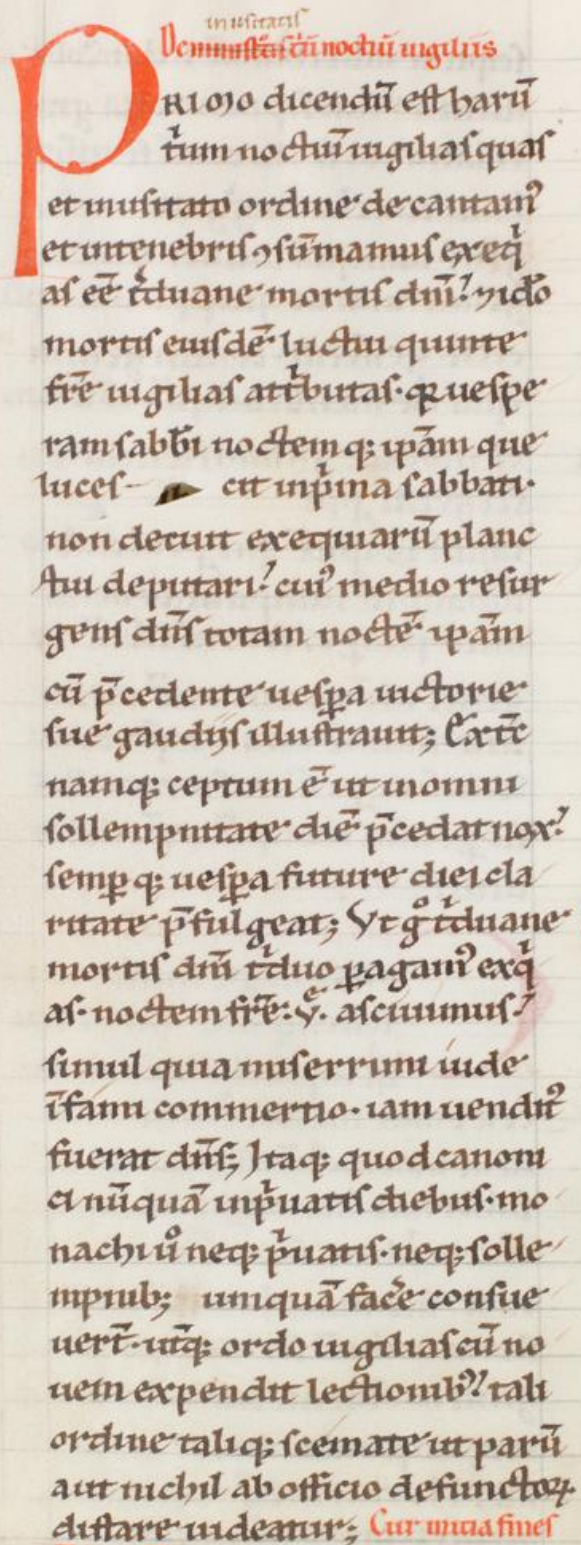 inusitatis
De ministris trium noctiū uigiliis
PRIMO dicendū est harū
tⁱum noctiū uigilias quas
et inusitato ordine decantamꝰ
et in tenebris ꝯsūmamus exeqⁱ
as eē tⁱduane mortis dn̄i. ⁊ idō
mortis eiusdē luctui quinte
fr̄e uigilias attⁱbutas. qꝛ uespe
ram sabb̄i noctemq; ip̄am que
luces- cit inpⁱma sabbati.
non decuit exequiarū planc
tui deputari. cuiꝰ medio resur
gens dn̄s totam noctē ip̄am
cū p̄cedente uesꝑa uictorie
sue gaudiis illustrauit; Ex tc̄
namq; ceptum ē ut in omni
sollempnitate diē p̄cedat nox.
semꝑq; uesꝑa future diei cla
ritate p̄fulgeat; Vt gͦ tⁱduane
mortis dn̄i tⁱduo ꝑagamꝰ exqⁱ
as. noctem fr̄e .v͞. asciuimus.
simul quia miserrimi iude
īfami commertio. iam uenditꝰ
fuerat dn̄s; Itaq; quod canoni
ci nūquā inpⁱuatis diebus. mo
nachi uͦ neq; pⁱuatis. neq; solle
mpnib; umquā fac̄e consue
uert̄. utq; ordo uigilias cū no
uem expendit lectionibꝰ tali
ordine taliq; scemate ut parū
aut nichil ab officio defunctoꝝ
distare uideatur; Cur inicia fines